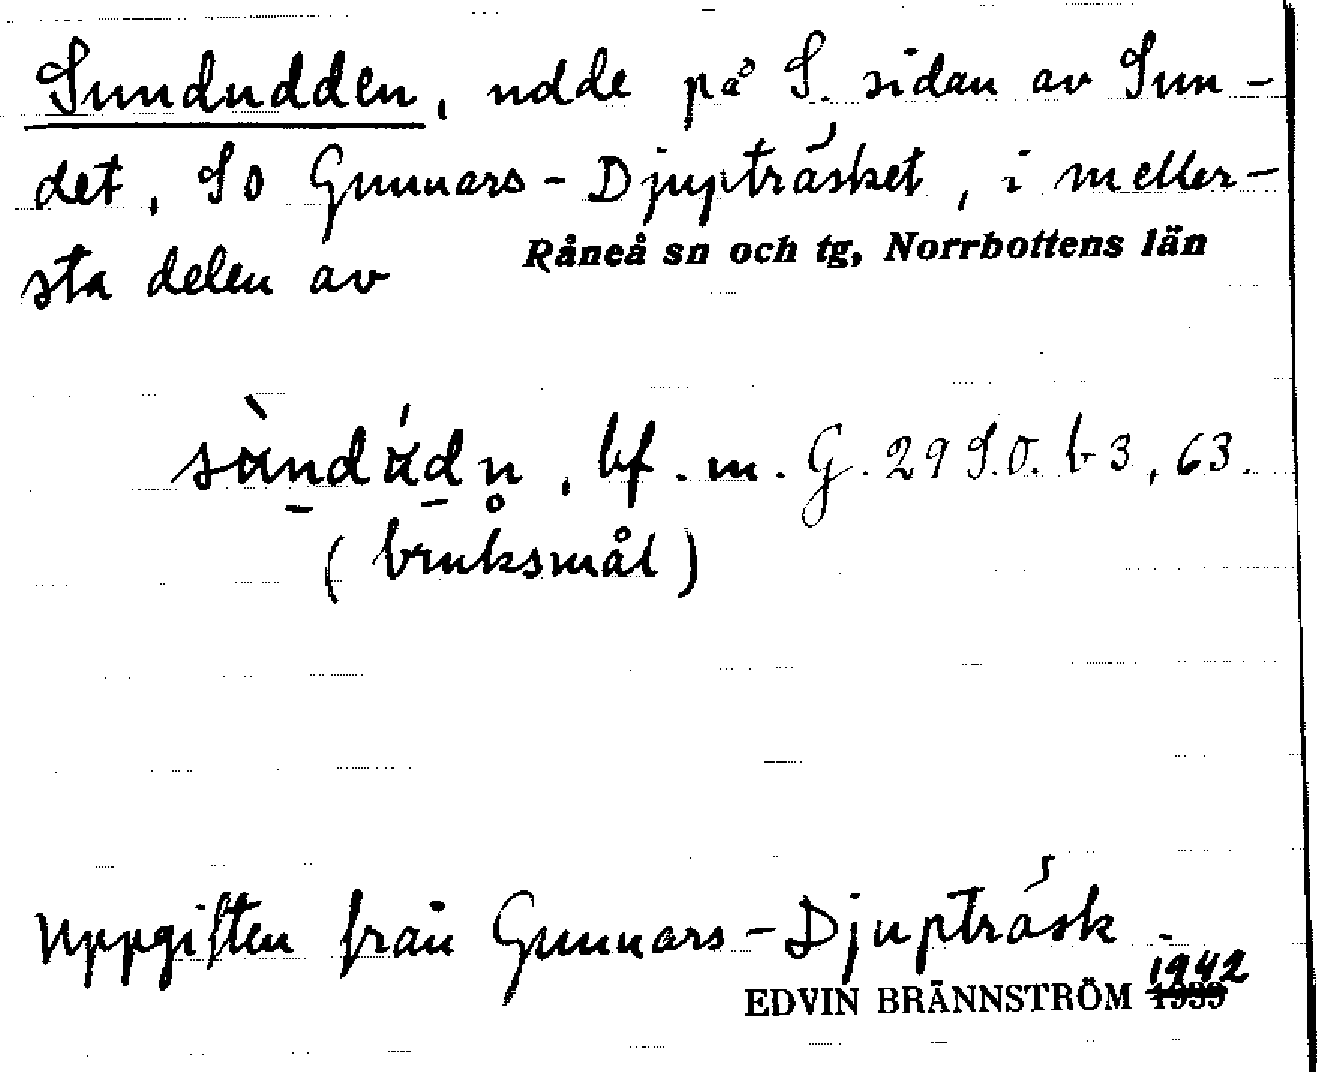 Sundudden, udde på S. sidan av Sun-
det, SO Gunnars-Djupträsket, i meller-
sta delen av Råneå sn och tg, Norrbottens län
bf. m. G. 29 S.O. b 3, 63.
(bruksmål)
Uppgiften från Gunnars-Djupträsk.
EDVIN BRÄNNSTRÖM 1942